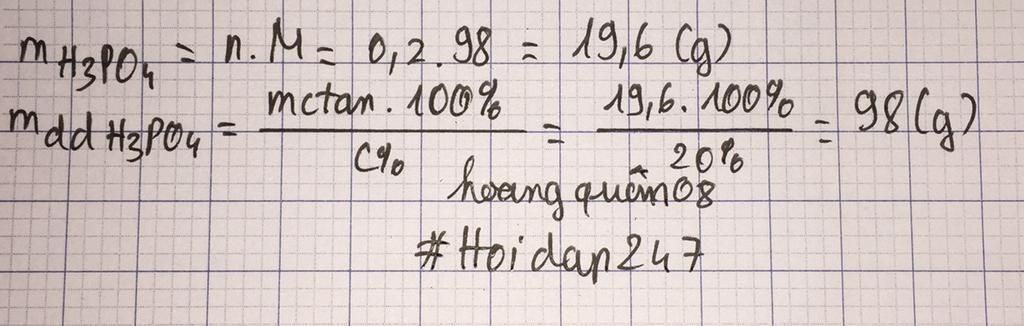 mH₃PO₄ = n.M = 0,2.98 = 19,6 (g)
mddH₃PO₄ = mctan.100% / C% = 19,6.100% / 20% = 98(g)
hoangquân08
#Hoidap247